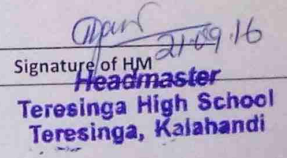 21.09.16
Signature of HM
Headmaster
Teresinga High School
Teresinga, Kalahandi